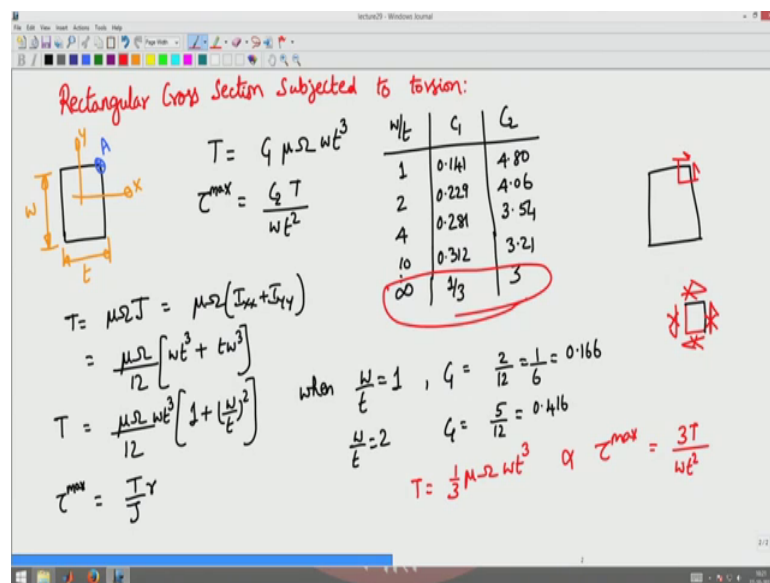 lecture29 - Windows Journal
File Edit View Insert Actions Tools Help
Page Width
Rectangular Cross Section Subjected to torsion:
y
A
x
w
t
T = C₁ μΩ wt³
τ^max = C₂ T / wt²
w/t C₁ C₂
1 0.141 4.80
2 0.229 4.06
4 0.281 3.54
10 0.312 3.21
∞ 1/3 3
T = μΩJ = μΩ(Ixx + Iyy)
= μΩ/12 [wt³ + tw³]
T = μΩ/12 wt³ [1 + (w/t)²]
τ^max = T/J r
when w/t = 1, C₁ = 2/12 = 1/6 = 0.166
w/t = 2 C₁ = 5/12 = 0.416
T = 1/3 μΩ wt³ & τ^max = 3T / wt²
2/2